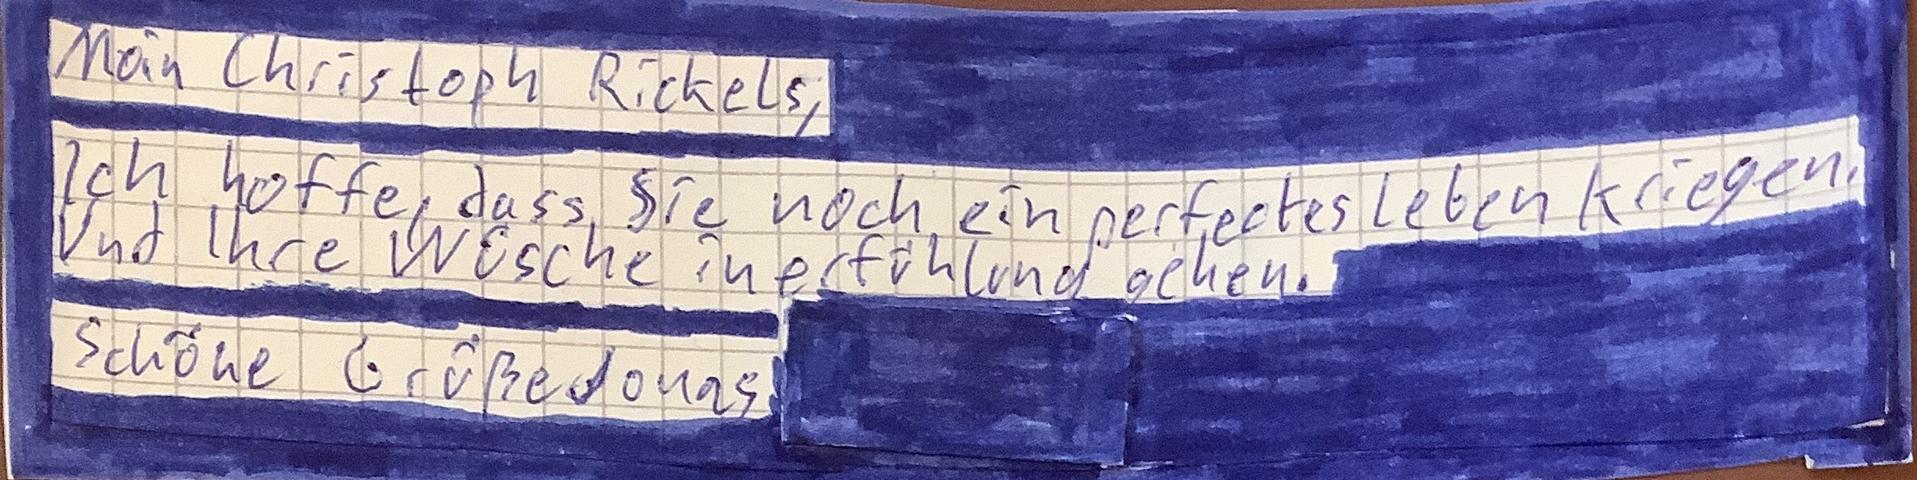 Moin Christoph Rickels,
Ich hoffe, dass Sie noch ein perfectes leben kriegen.
Und Ihre Wüsche in erfühlung gehen.
Schöne Grüße Jonas